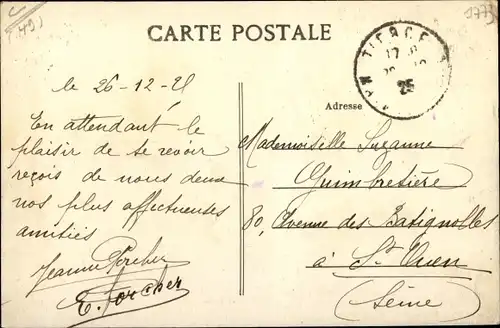 (49)
CARTE POSTALE
TIERCE
Adresse
le 26-12-25
En attendant le
plaisir de te revoir
reçois de nous deux
nos plus affectueuses
amitiés
Jeanne Porcher
E. Porcher
Mademoiselle Suzanne
Quimbretière
80, Avenue des Batignolles
à St Ouen
(Seine)